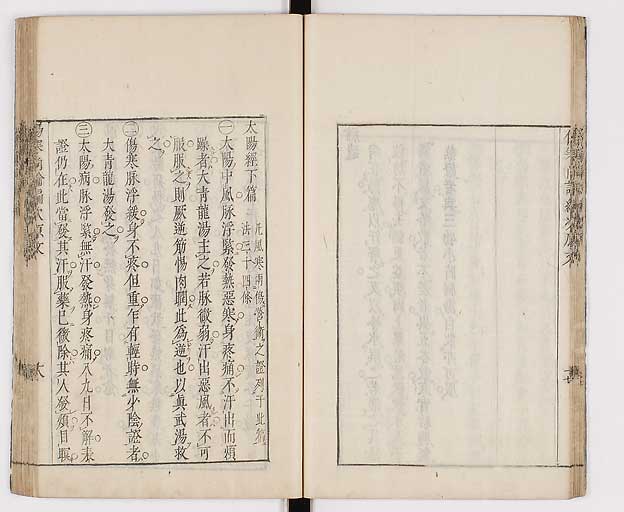 太陽經下篇
凡風寒兩傷營衛之證列于此篇
法三十四條
㊀太陽中風脉浮緊發熱惡寒身疼痛不汗出而煩
躁者大青龍湯主之若脉微弱汗出惡風者不可
服服之則厥逆筋惕肉瞤此為逆也以真武湯救
之
㊁傷寒脉浮緩身不疼但重乍有輕時無少陰證者
大青龍湯發之
㊂太陽病脉浮緊無汗發熱身疼痛八九日不解表
證仍在此當發其汗服藥已微除其人發煩目瞑